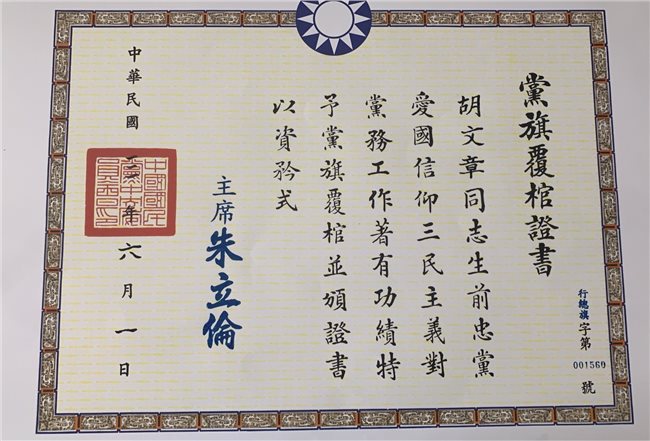 黨旗覆棺證書
行總旗字第001560號
胡文章同志生前忠黨
愛國信仰三民主義對
黨務工作著有功績特
予黨旗覆棺並頒證書
以資矜式
主席 朱立倫
中華民國 年六月一日